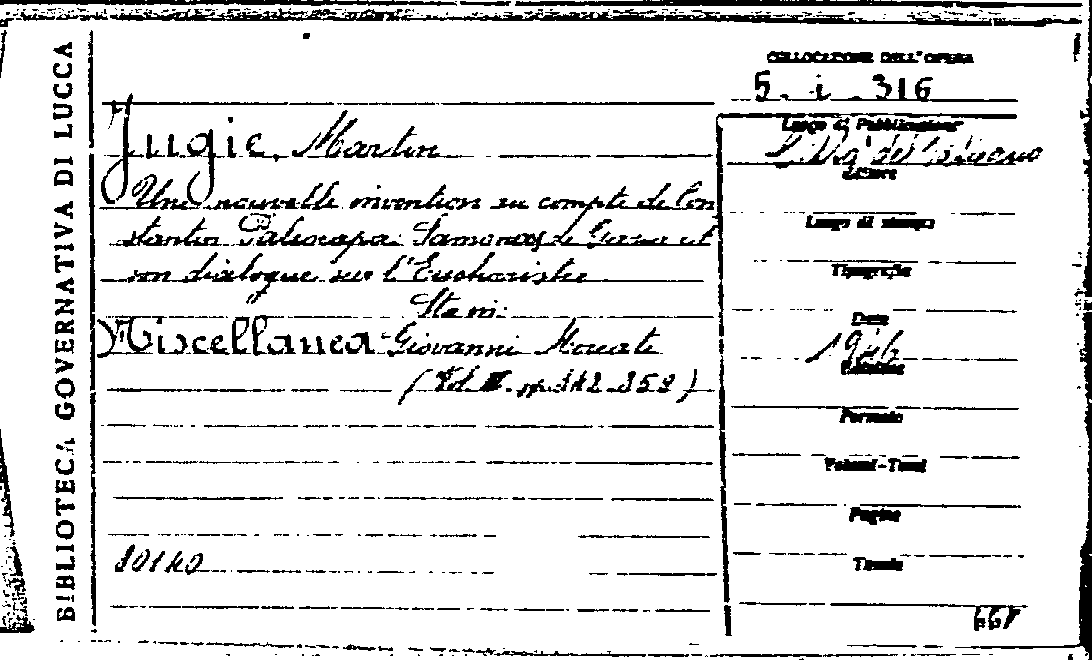 BIBLIOTECA GOVERNATIVA DI LUCCA
COLLOCAZIONE DELL'OPERA
5. i. 316
Jugie, Martin
Une nouvelle invention au compte de Con
stantin Paliocapa: Samonas de Gaza et
son dialogue sur l'Eucharistie
Sta in:
Miscellanea Giovanni Mercati
(Vol III. pp. 342-359)
10140
Luogo di Pubblicazione
Editore
Luogo di stampa
Tipografia
Data
1946
Edizione
Formato
Volumi-Tomi
Pagine
Tavole